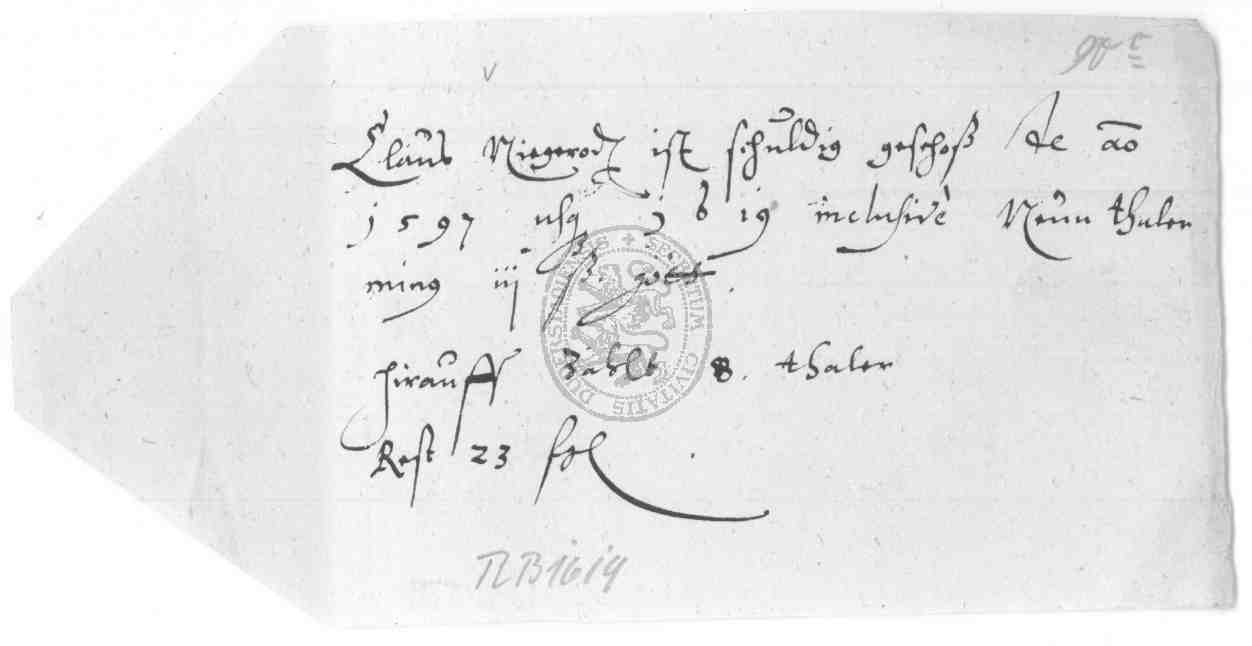 90 r
Clauß Niegerodt ist schuldig geschoß de ao
1597 usq 1619 inclusive Neun thaler
minus iij ß
hirauff Zahlt 8. thaler
Rest 23 ßl
RB 1619
SECRETUM CIVITATIS DUDERSTADIENSIS